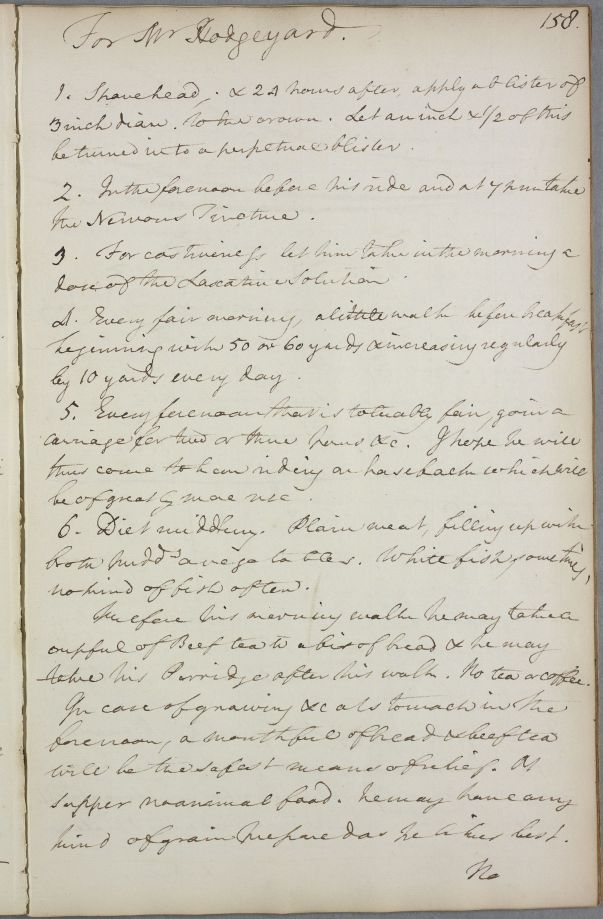 158.
For Mr Hodgeyard.
1. Shave head, & 24 hours after, apply a blister of
3 inch diam. to the crown. Let an inch & 1/2 of this
be turned into a perpetual blister.
2. In the forenoon before his ride and at 7 p m take
the Nervous Tincture.
3. For costiveness let him take in the morning a
dose of the Laxative Solution
4. Every fair morning, a little walk before breakfast
beginning with 50 or 60 yards & increasing regularly
by 10 yards every day.
5. Every forenoon that is tolerably fair, go in a
carriage for two or three hours &c. I hope he will
thus come to bear riding on horseback which will
be of great more use.
6. Diet middling. Plain meat, filling up with
broth pudds & vegetables. White fish sometimes,
no kind of fish often.
Before his morning walk he may take a
cupful of Beef tea & a bis of bread & he may
take his Porridge after his walk. No tea or coffee.
In case of gnawing &c at stomach in the
forenoon, a mouthful of bread & beef tea
will be the safest means of relief. At
supper no animal food. He may have any
kind of grain prepared as he likes best.
No